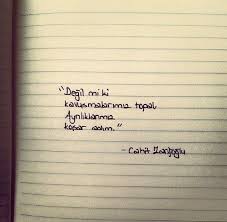 "Değil mi ki
kavuşmalarımız topal
Ayrılıklarımız
koşar adım."
- Cahit Zarifoğlu